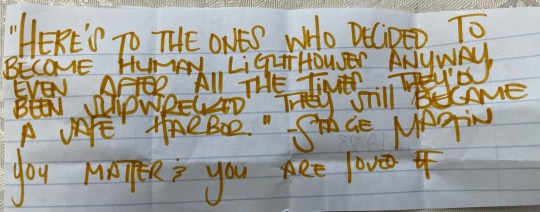 "HERE'S TO THE ONES WHO DECIDED TO
BECOME HUMAN LIGHTHOUSES ANYWAY,
EVEN AFTER ALL THE TIMES THEY'D
BEEN SHIPWRECKED THEY STILL BECAME
A SAFE HARBOR." -STACIE MARTIN
YOU MATTER & YOU ARE LOVED